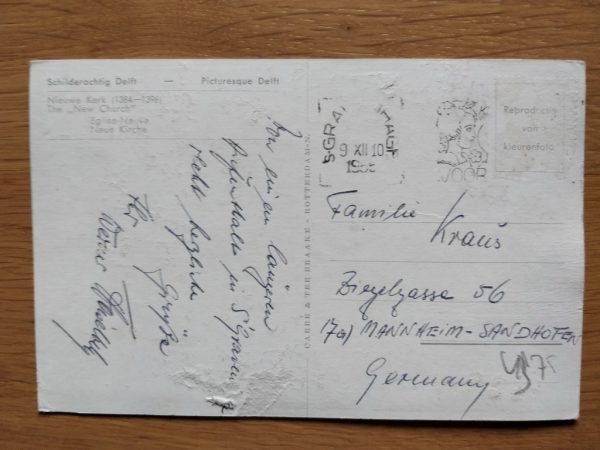 Schilderachtig Delft — Picturesque Delft
Nieuwe Kerk (1384—1396)
The „New Church"
Eglise-Neuve
Neue Kirche
Von einem längeren
Aufenthalt in S'Graven
recht herzliche
Grüße
Ihr
Werner
CAHER & TER BRAAKE - ROTTERDAM-N.
S-GRA
HAGE
9 XII 10
VOOR
Reproductie
van
kleurenfoto
Familie
Kraus
Ziegelgasse 56
(17a) MANNHEIM-SANDHOFEN
Germany